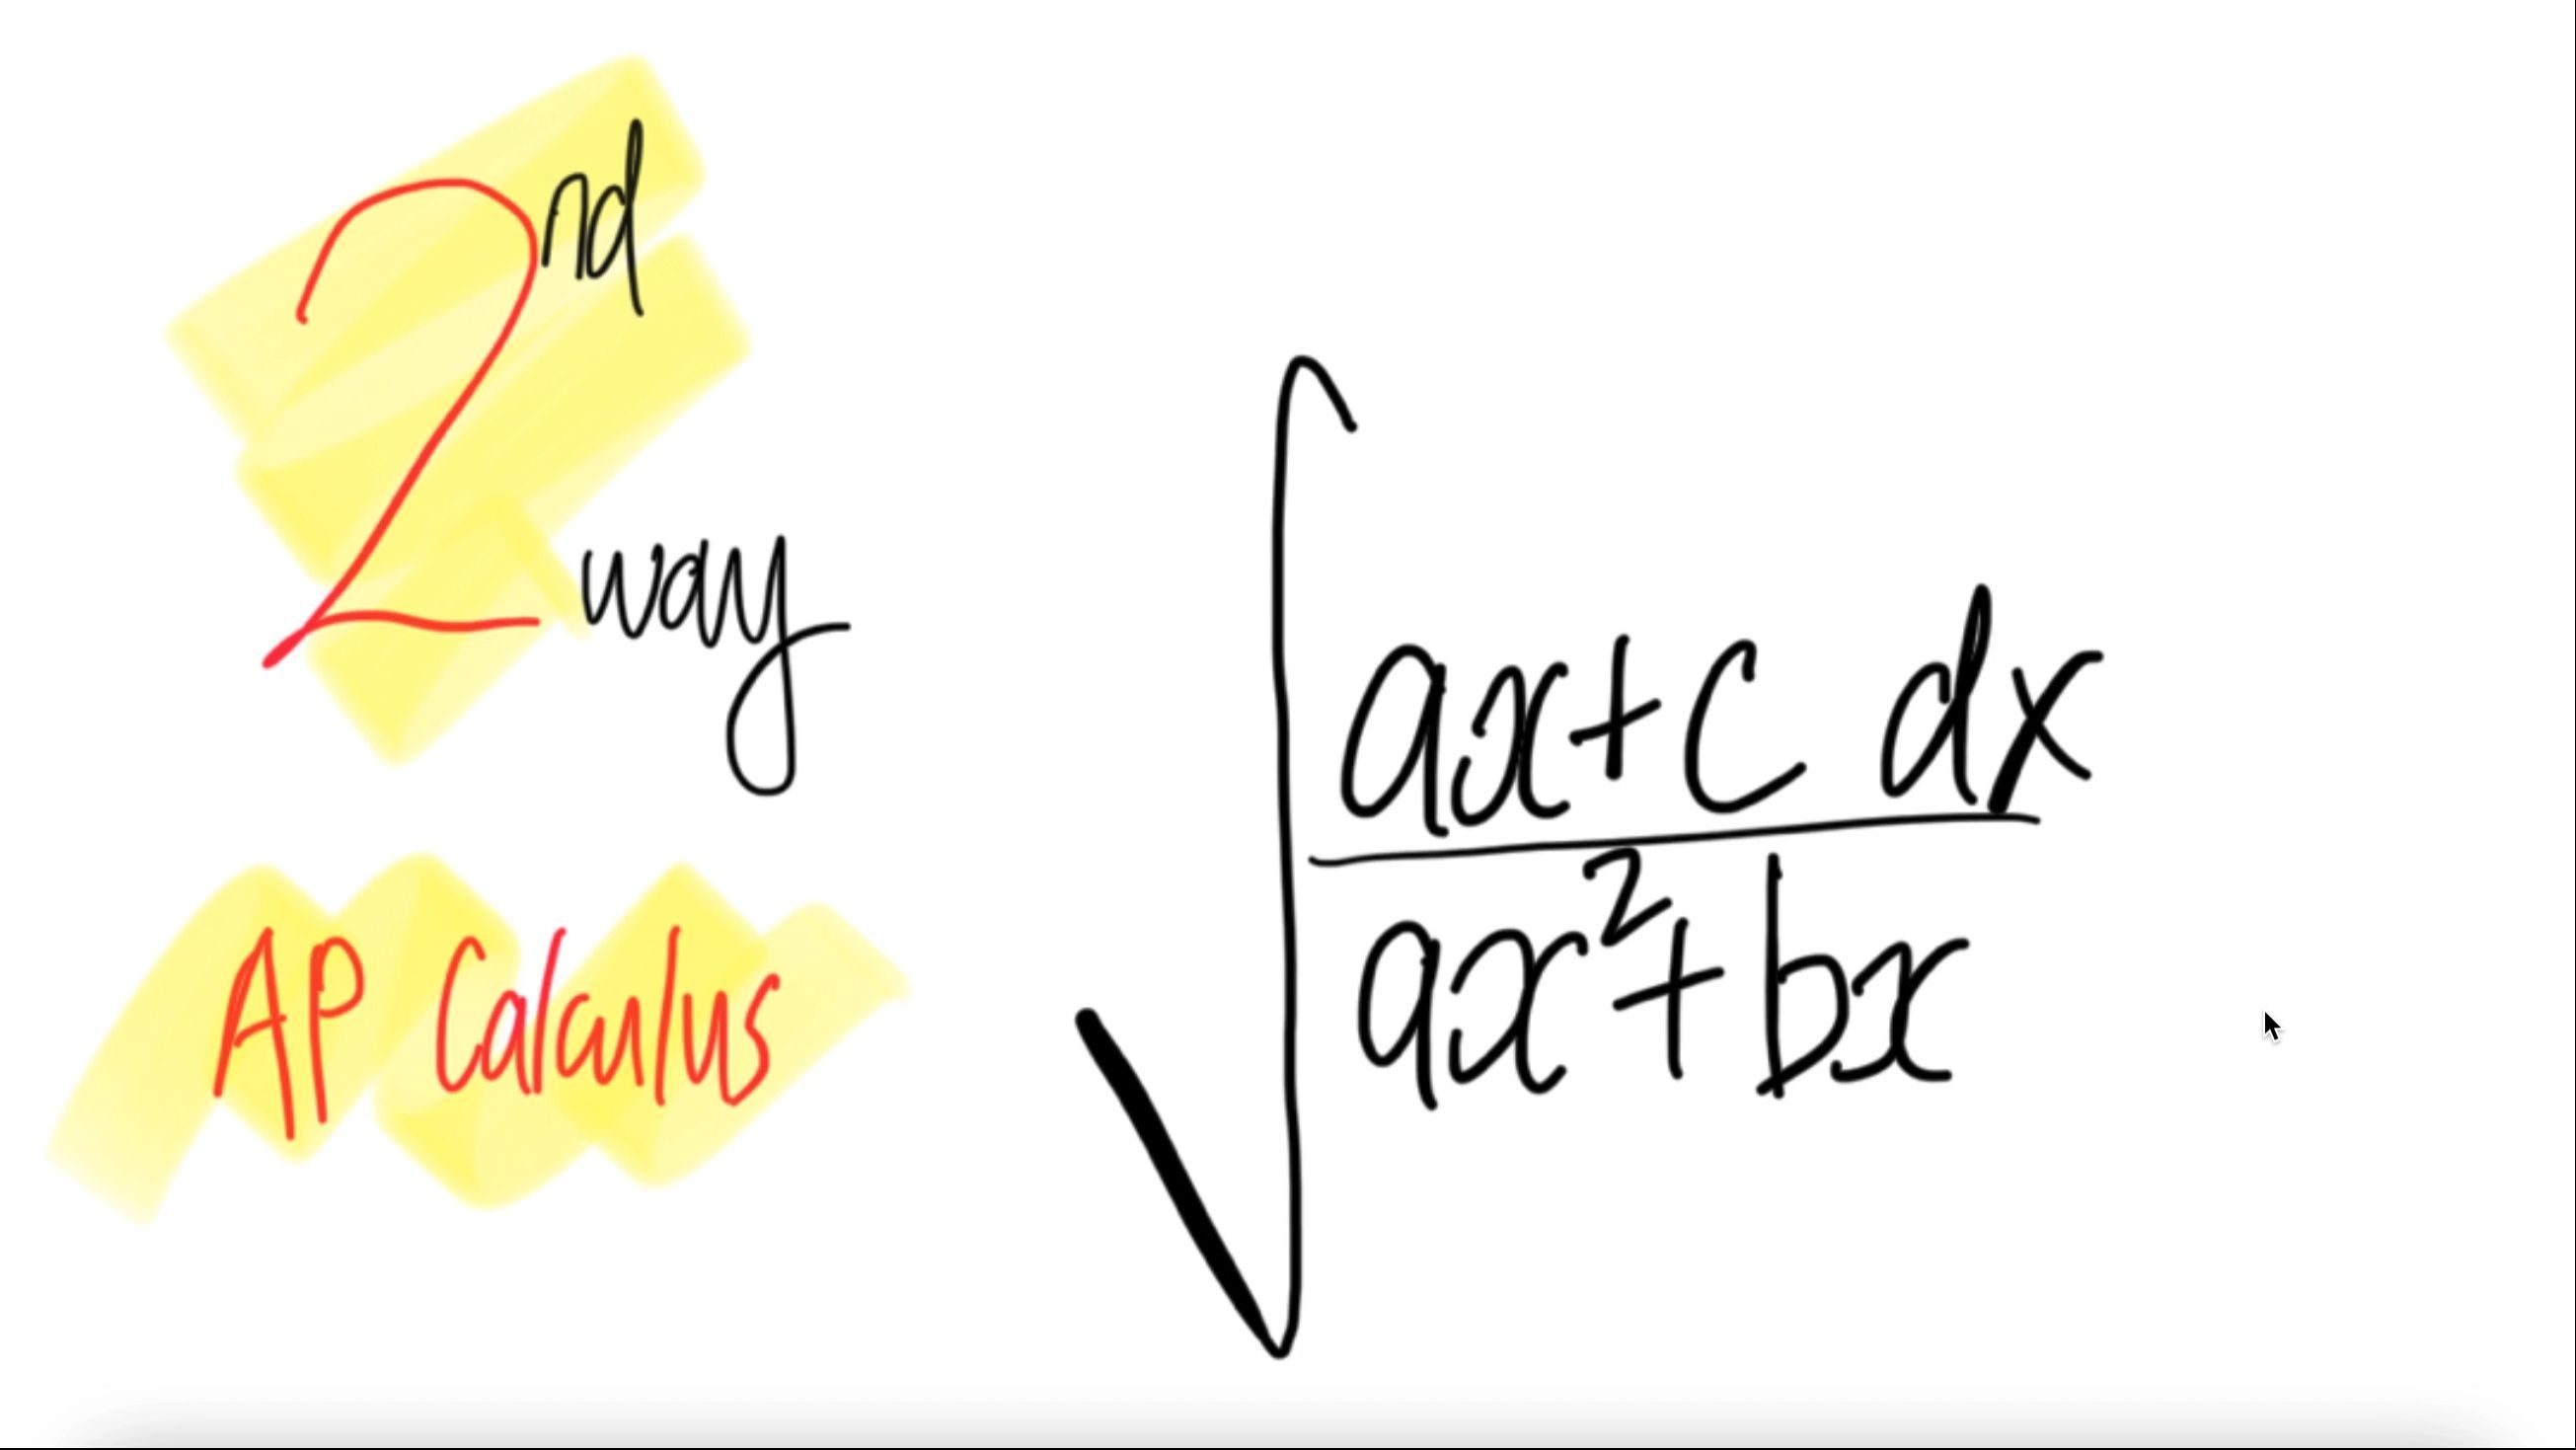 2nd
way
AP Calculus
∫ ax+c dx
ax²+bx